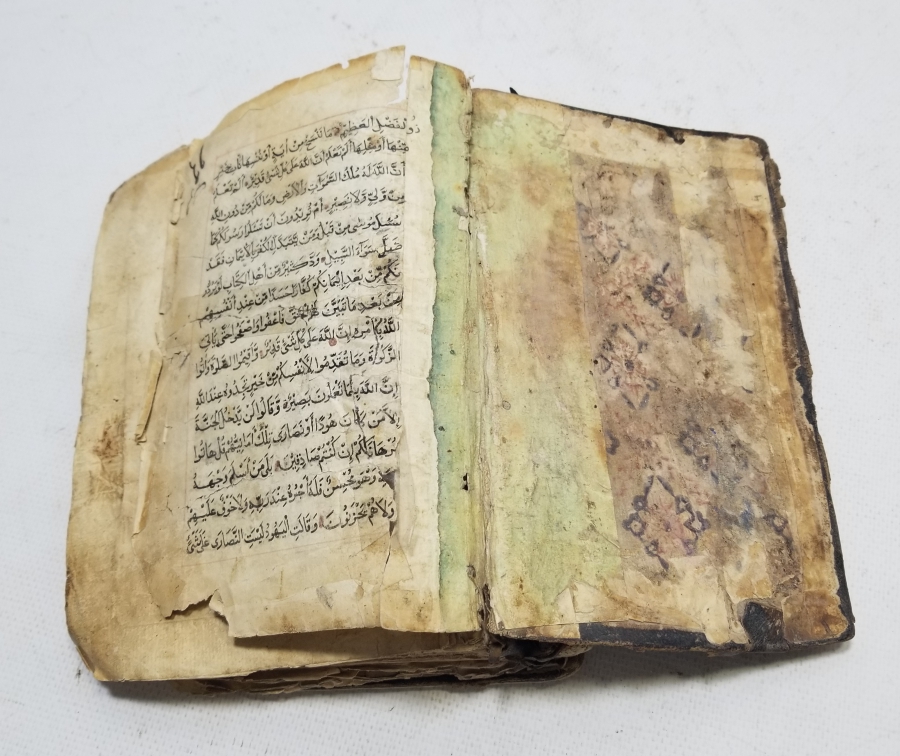 ذُو الْفَضْلِ الْعَظِيْمِ مَا نَنْسَخْ مِنْ اٰيَةٍ اَوْ نُنْسِهَا نَاْتِ بِخَيْرٍ
مِنْهَا اَوْ مِثْلِهَا اَلَمْ تَعْلَمْ اَنَّ اللّٰهَ عَلٰى كُلِّ شَيْءٍ قَدِيْرٌ اَلَمْ تَعْلَمْ
اَنَّ اللّٰهَ لَهُ مُلْكُ السَّمٰوَاتِ وَالْاَرْضِ وَمَا لَكُمْ مِنْ دُوْنِ اللّٰهِ
مِنْ وَلِيٍّ وَلَا نَصِيْرٍ اَمْ تُرِيْدُوْنَ اَنْ تَسْئَلُوْا رَسُوْلَكُمْ كَمَا
سُئِلَ مُوْسٰى مِنْ قَبْلُ وَمَنْ يَتَبَدَّلِ الْكُفْرَ بِالْاِيْمَانِ فَقَدْ
ضَلَّ سَوَآءَ السَّبِيْلِ وَدَّ كَثِيْرٌ مِنْ اَهْلِ الْكِتَابِ لَوْ يَرُدُّوْ
نَكُمْ مِنْ بَعْدِ اِيْمَانِكُمْ كُفَّارًا حَسَدًا مِنْ عِنْدِ اَنْفُسِهِمْ
مِنْ بَعْدِ مَا تَبَيَّنَ لَهُمُ الْحَقُّ فَاعْفُوْا وَاصْفَحُوْا حَتّٰى يَاْتِيَ
اللّٰهُ بِاَمْرِهِ اِنَّ اللّٰهَ عَلٰى كُلِّ شَيْءٍ قَدِيْرٌ وَاَقِيْمُوا الصَّلٰوةَ وَاٰتُوا
الزَّكٰوةَ وَمَا تُقَدِّمُوْا لِاَنْفُسِكُمْ مِنْ خَيْرٍ تَجِدُوْهُ عِنْدَ اللّٰهِ
اِنَّ اللّٰهَ بِمَا تَعْمَلُوْنَ بَصِيْرٌ وَقَالُوْا لَنْ يَدْخُلَ الْجَنَّةَ
اِلَّا مَنْ كَانَ هُوْدًا اَوْ نَصَارٰى تِلْكَ اَمَانِيُّهُمْ قُلْ هَاتُوْا
بُرْهَانَكُمْ اِنْ كُنْتُمْ صَادِقِيْنَ بَلٰى مَنْ اَسْلَمَ وَجْهَهُ
وَهُوَ مُحْسِنٌ فَلَهُ اَجْرُهُ عِنْدَ رَبِّهِ وَلَا خَوْفٌ عَلَيْهِمْ
وَلَا هُمْ يَحْزَنُوْنَ وَقَالَتِ الْيَهُوْدُ لَيْسَتِ النَّصَارٰى عَلٰى شَيْءٍ